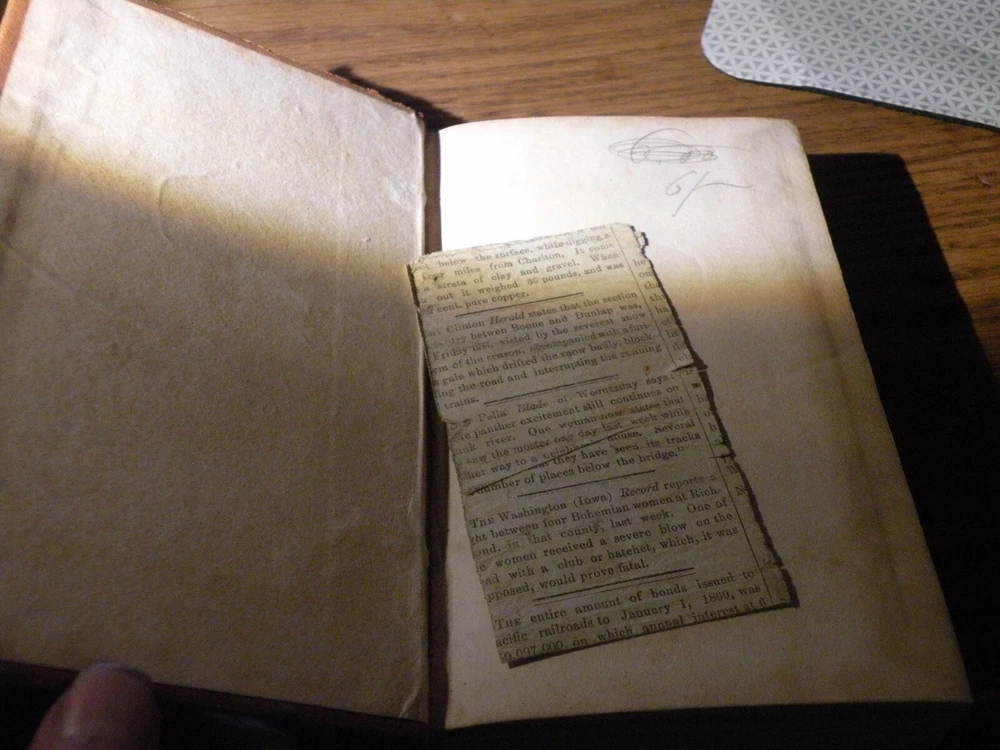 6/
below the surface, while digging a
miles from Chariton. It some
strata of clay and gravel. When
out it weighed 35 pounds, and was
cent. pure copper.
Clinton Herald states that the section
betwen Boone and Dunlap was,
Friday last, visted by the severest snow
of the season, accompanied with a furi-
gale which drifted the snow badly, block
ing the road and interrupting the running
trains.
Pella Blade of Wednesday says:
panther excitement still continues on
river. One woman now states that
saw the monster one day last week while
her way to a neighbor's house. Several
that they have seen its tracks
number of places below the bridge."
THE Washington (Iowa) Record reports a
ght between four Bohemian women at Rich-
ond, in that county, last week. One of
women received a severe blow on the
ad with a club or hatchet, which, it was
pposed, would prove fatal.
THE entire amount of bonds issued to
acific railroads to January 1, 1869, was
0,097,000, on which annual interest at 6